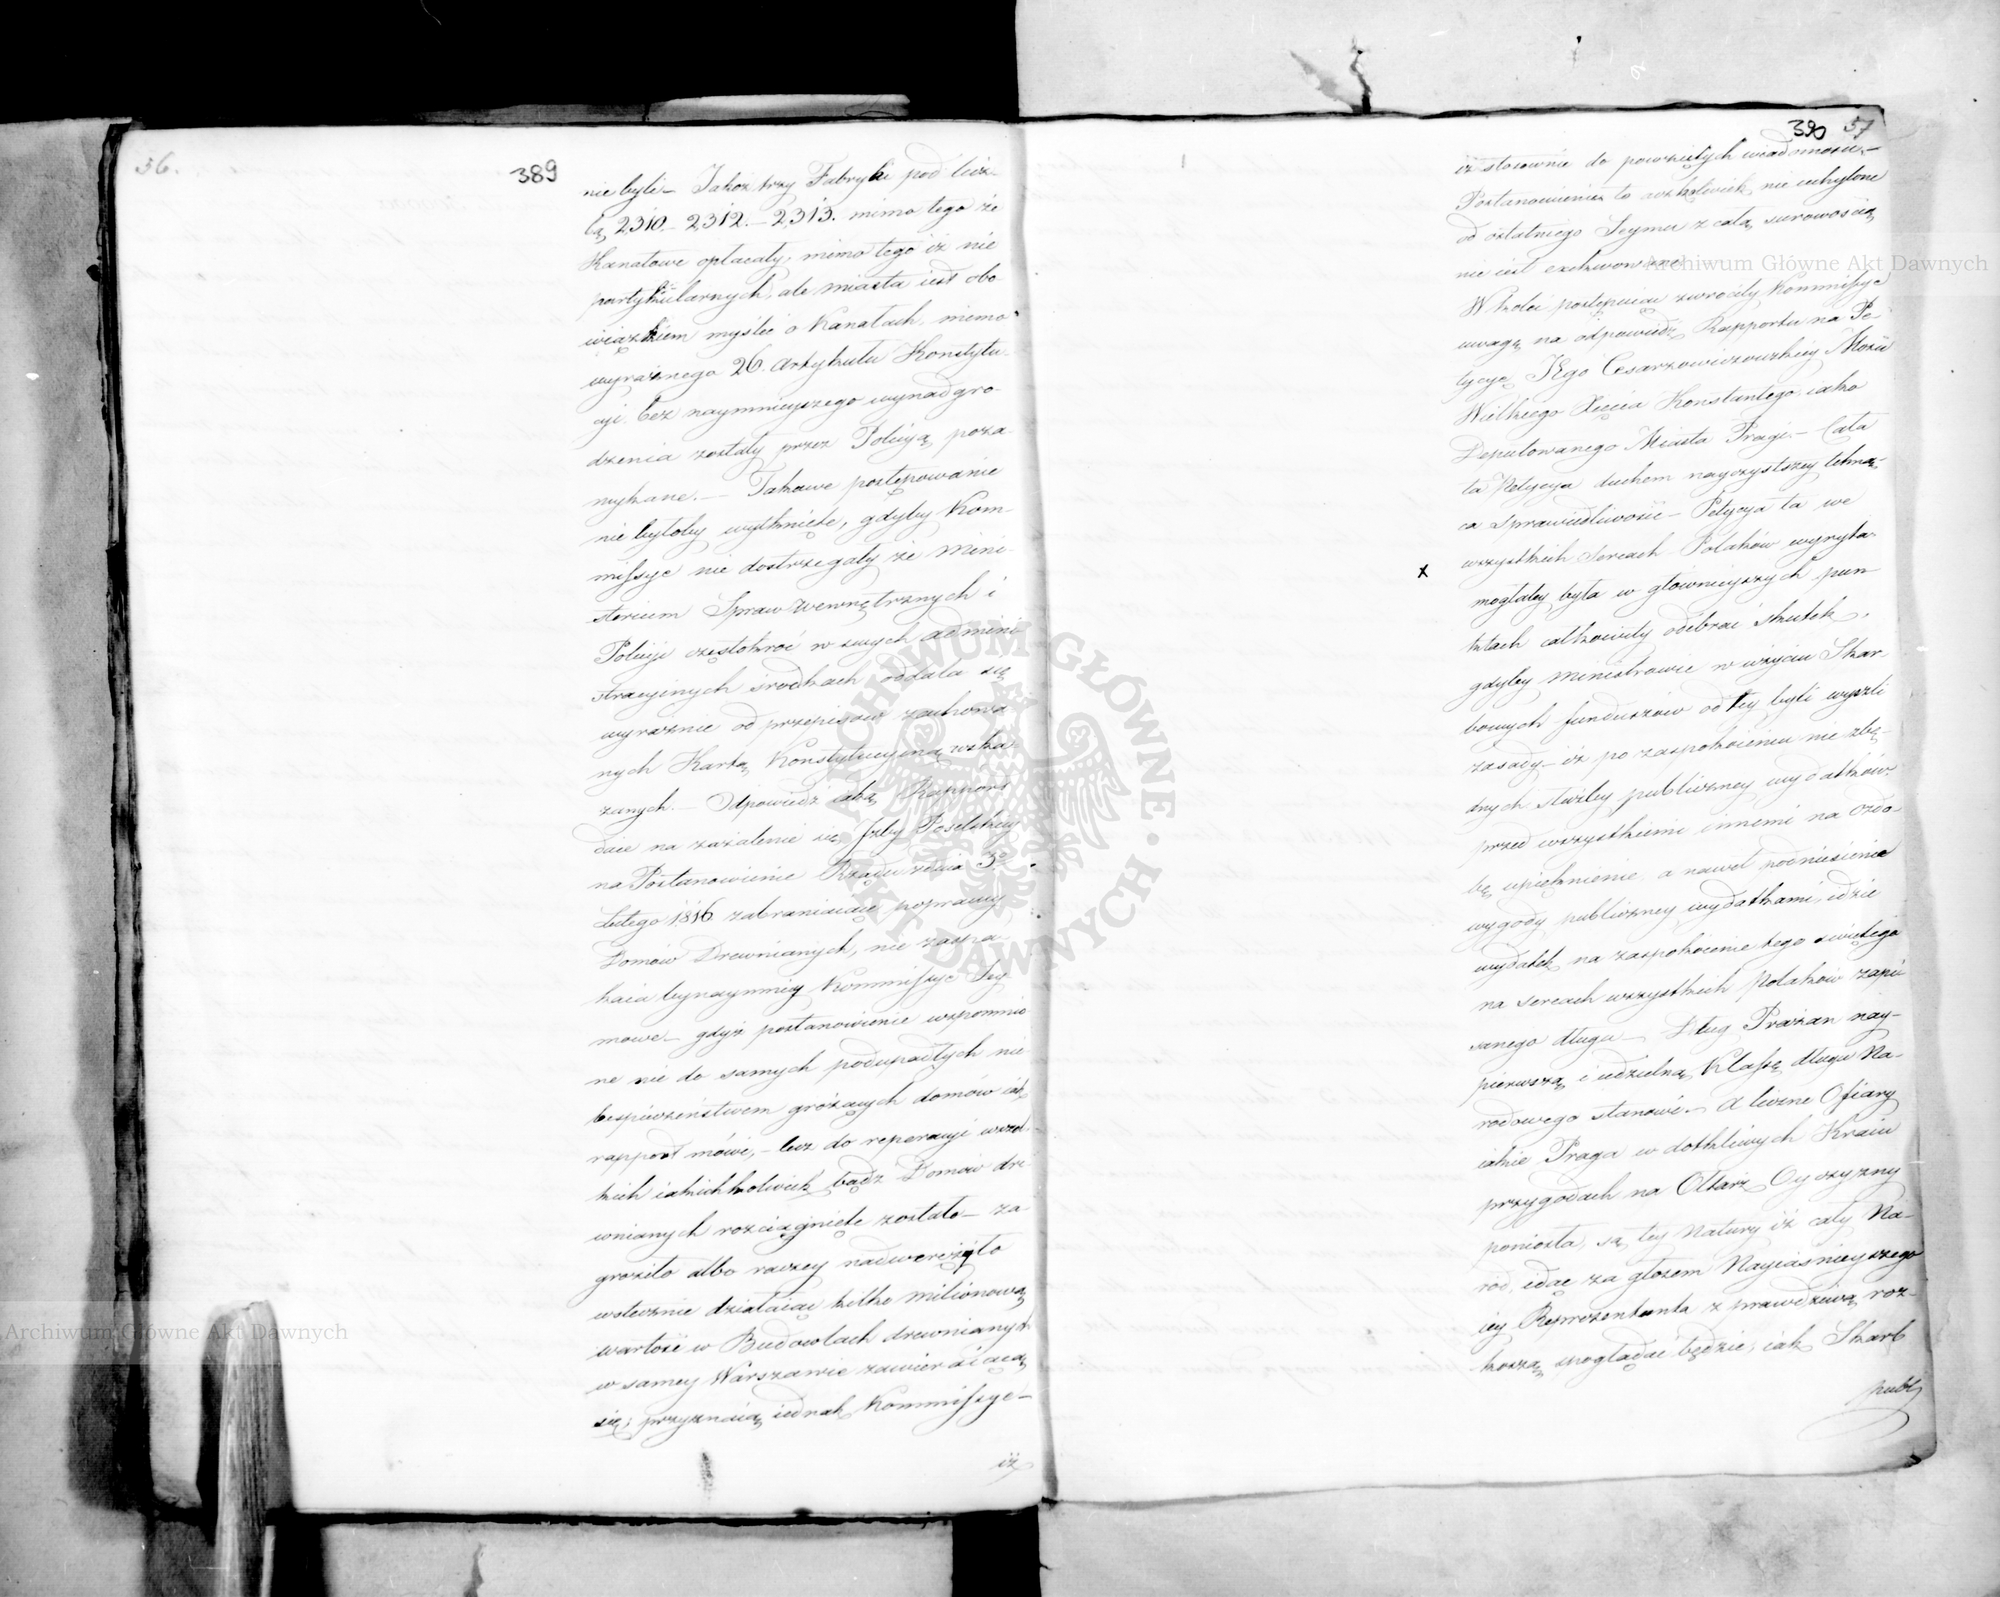 56.
389
nie byli – Jakoż trzy Fabryki pod licz-
bą 2310. – 2312. – 2313. mimo tego że
Kanałowe opłacały, mimo tego iż nie
partykularnych, ale miasta iest obo-
wiązkiem myśleć o Kanałach, mimo
wyraźnego 26. Artykułu Konstytu-
cyi. bez naymnieyszego wynadgro-
dzenia zostały przez Policyą poza-
mykane. – Takowe postępowanie
nie byłoby wytknięte, gdyby Kom-
missye nie dostrzegały że Mini-
sterium Spraw Wewnętrznych i
Policyi częstokroć w swych admini-
stracyinych środkach oddala się
wyraźnie od przepisów zachowa
nych Kartą Konstytucyiną wska-
zanych. – Odpowiedź iaką Rapport
daie na zażalenie się Izby Poselskiey
na Postanowienie Rządu z dnia 3º
Lutego 1816 zabraniaiące poprawy
Domów Drewnianych, nie zaspa-
kaia bynaymniey Kommissye Sey-
mowe – gdyż postanowienie wspomnio
ne nie do samych podupadłych nie
bespieczeństwem grożących domów iak
rapport mówi, – lecz do reperacyi wszel-
kich iakichkolwiek bądź Domów dre-
wnianych rozciągnięte zostało – za
groziło albo raczey nadwerężyło
wstecznie działaiąc kilko milionową
wartość w Budowlach drewnianych
w samey Warszawie zawieraiącą
się; przyznaią iednak Kommissye –
iż
390 57
iż stosownie do powziętych wiadomości –
Postanowienie to aczkolwiek nie uchylone
od ostatniego Seymu z całą surowością
nie iest exekwowane
W kolei postępuiąc zwróciły Kommissye
uwagę na odpowiedź Rapportu na Pe-
tycyę JEgo Cesarzowiczowskiey Mości
Wielkiego Xięcia Konstantego iako
Deputowanego Miasta Pragi. – Cała
ta Petycya duchem nayczystszey tchną-
ca Sprawiedliwości – Petycya ta we
wszystkich sercach Polaków wyryta.
x
mogłaby była w głównieyszych pun
ktach całkowity odebrać skutek,
gdyby Ministrowie w użyciu Skar-
bowych funduszów od tey byli wyszli
zasady – iż po zaspokoieniu nie zbę-
dnych służby publiczney wydatków
przed wszystkiemi innemi na ozdo-
bę upięknienie, a nawet podniesienie
wygody publiczney wydatkami, idzie
wydatek na zaspokoienie tego świętego
na sercach wszystkich Polaków zapi-
sanego długu – Dług Prażan nay-
pierwszą i udzielną Klassę długu Na-
rodowego stanowi – A liczne Ofiary
iakie Praga w dotkliwych Kraiu
przygodach na Ołtarz Oyczyzny
poniosła, są tey Natury iż cały Na-
ród idąc za głosem Nayiaśnieyszego
iey Reprezentanta z prawdziwą roz-
koszą spoglądać będzie, iak Skarb
publ
Archiwum Główne Akt Dawnych
Archiwum Główne Akt Dawnych
ARCHIWUM GŁÓWNE AKT DAWNYCH